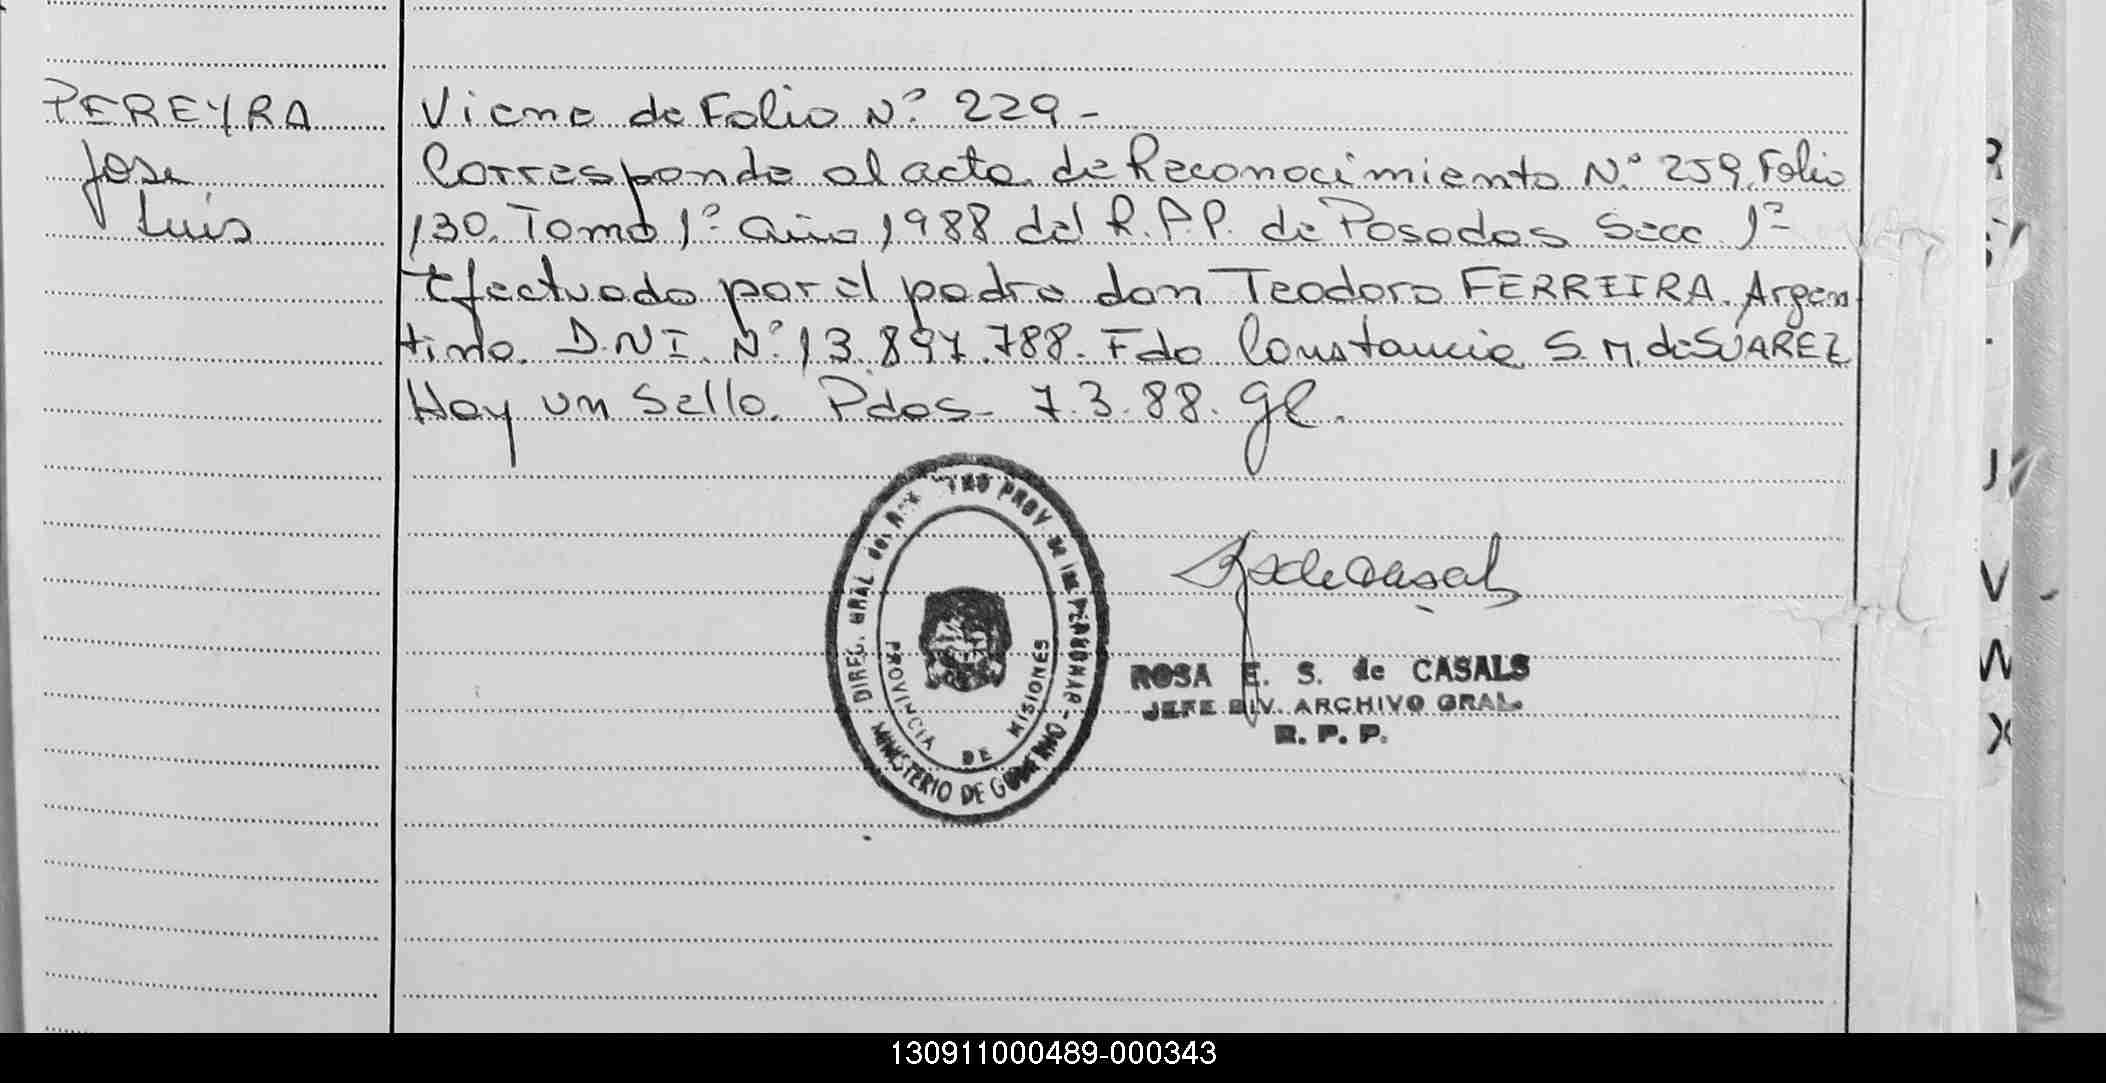 PEREYRA
Jose
Luis
Viene de Folio N° 229 -
Corresponde al acta de Reconocimiento N° 259. Folio
130. Tomo 1° año 1988 del R.P.P. de Posadas Secc 1ª
Efectuado por el padre don Teodoro FERREIRA. Argen
tino. D.N.I. N° 13.897.788. Fdo Constancia S. M. de SUAREZ
Hay un Sello. Pdas - 7.3.88. gl.
DIREC. GRAL del PROV. de las PERSONAS -
MINISTERIO DE GOBIERNO
PROVINCIA DE MISIONES
R S de Casals
ROSA E. S. de CASALS
JEFE DIV. ARCHIVO GRAL.
R. P. P.
J
V
W
X
130911000489-000343